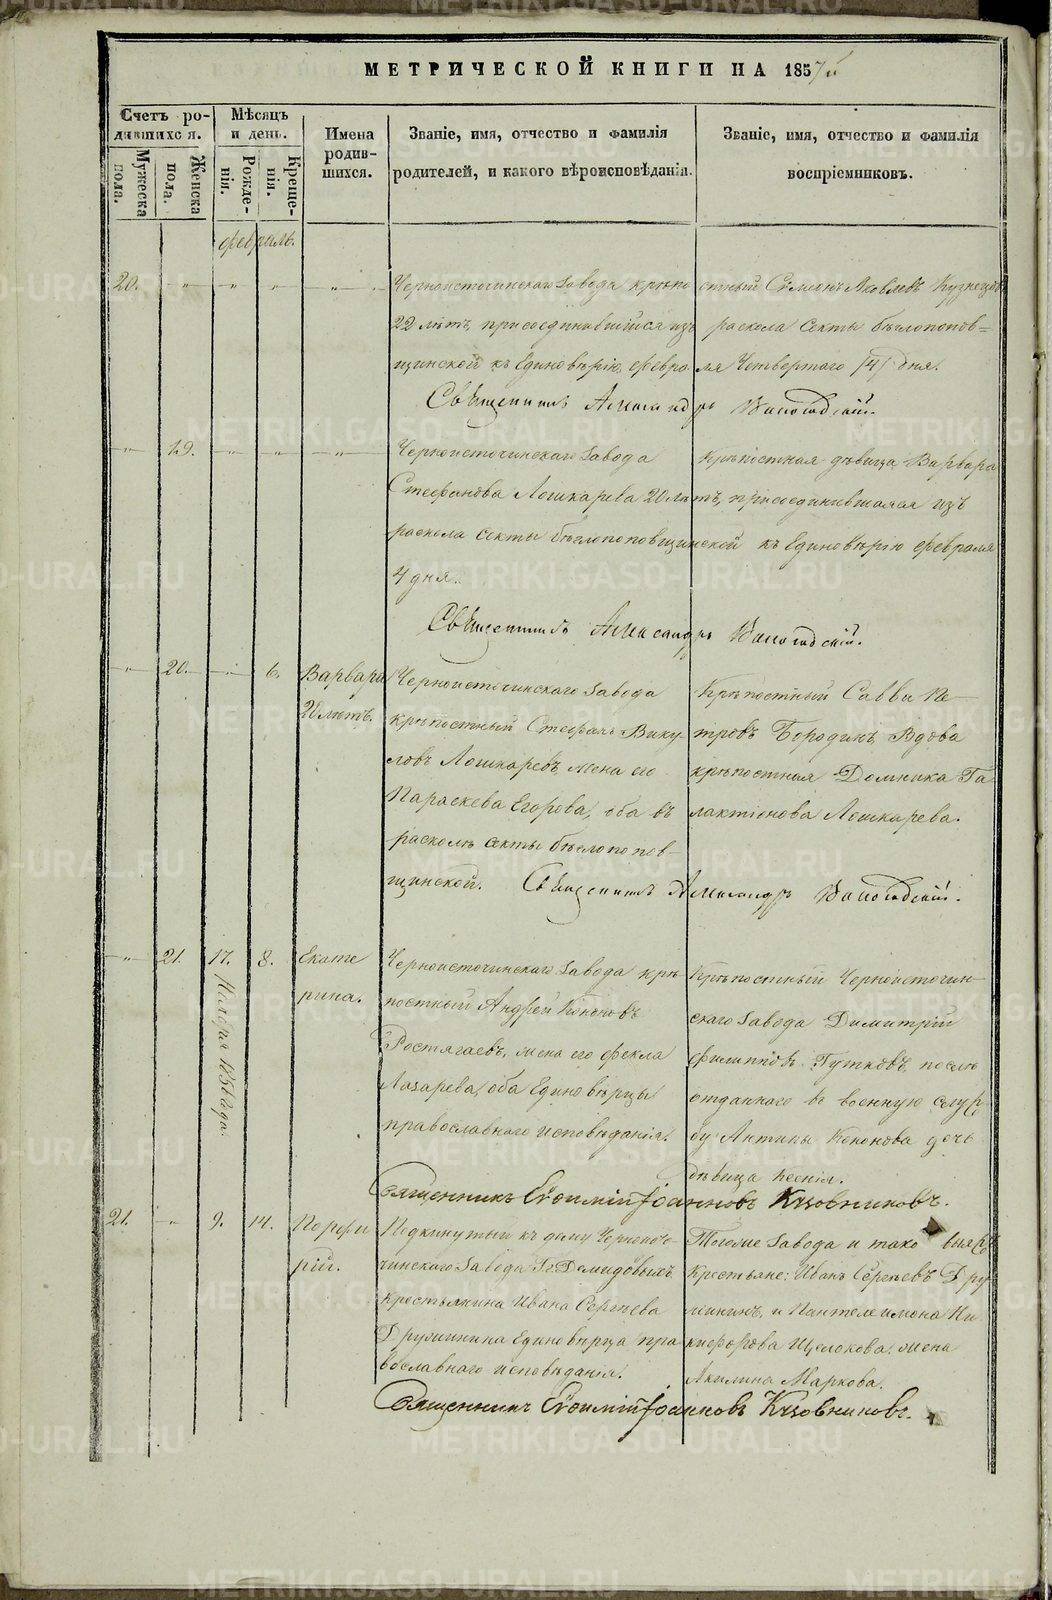 МЕТРИЧЕСКОЙ КНИГИ НА 1857й
Счетъ родившихся.
Мѣсяцъ и день.
Имена родившихся.
Званіе, имя, отчество и фамилія родителей, и какого вѣроисповѣданія.
Званіе, имя, отчество и фамилія воспріемниковъ.
Мужеска пола.
Женска пола.
Рожденія.
Крещенія.
февраль.
20. Черноисточинскаго Завода крѣпостный Симеонъ Яковлевъ Кузнецовъ
22 лѣтъ, присоединившійся изъ раскола секты бѣглопопов=
щинской къ Единовѣрію, февраля Четвертаго /4/ дня.
Священникъ Александръ
19. Черноисточинскаго Завода Крѣпостная дѣвица Варвара
Стефанова Лошкарева 20 лѣтъ, присоединившаяся изъ
раскола секты бѣглопоповщинской къ Единовѣрію февраля
4 дня.
Священникъ Александръ
20. 6. Варвара
лѣтъ.
Черноисточинскаго Завода
крѣпостный Стефанъ Вику
ловъ Лошкаревъ, жена его
Параскева Егорова, оба въ
расколѣ секты бѣглопопов-
щинской.
Крѣпостный Савва Пе
тровъ Бородинъ, Вдова
крѣпостная Домника Га
лактіонова Лошкарева.
Священникъ Александръ
21. 17. Ноября 1856 года. 8. Екате
рина.
Черноисточинскаго Завода крѣ
постный Андрей Кононовъ
Ростягаевъ, жена его Фекла
Лазарева, оба Единовѣрцы
православнаго исповѣданія.
Крѣпостный Черноисточин-
скаго Завода Димитрій
Филипповъ Гутковъ, послѣ
отданнаго въ военную служ
бу Антипы Кононова дочь
дѣвица Ксенія.
Священникъ Іоанновъ
21. 9. 14. Порфи
рій.
Подкинутый къ дому Черноисто
чинскаго Завода Гг. Демидовыхъ
крестьянина Ивана Сергѣева
Дружинина Единовѣрца пра
вославнаго исповѣданія.
Тогоже Завода и тако выяж
Крестьяне: Иванъ Сергѣевъ Дру
жининъ, и Пантелеимона Ни
кифорова Щелокова жена
Акилина Маркова.
Священникъ Іоанновъ
METRIKI.GASO-URAL.RU